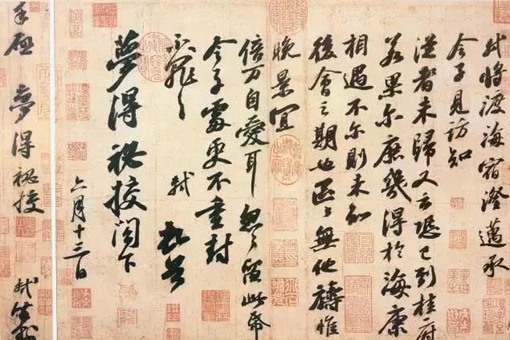 軾將渡海宿澄邁承
令子見訪知
從者未歸又云恐已到桂府
若果尔庶幾得於海康
相遇不尔則未知
後會之期也區區無他禱惟
晚景宜
倍万自愛耳忽忽留此帋
令子處更不重封
不罪不罪
軾頓首
夢得祕校閣下
六月十三日
手啟 夢得祕校
軾謹封